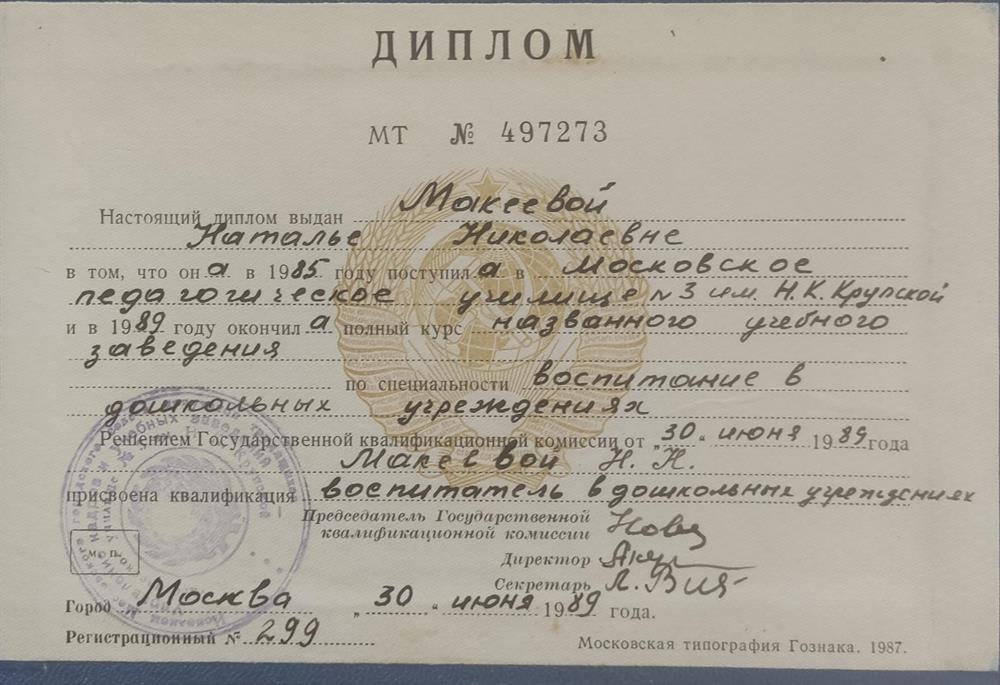 ДИПЛОМ
МТ № 497273
Настоящий диплом выдан Макеевой
Наталье Николаевне
в том, что он а в 1985 году поступил а в Московское
педагогическое училище № 3 им. Н.К. Крупской
и в 1989 году окончил а полный курс названного учебного
заведения
по специальности воспитание в
дошкольных учреждениях
Решением Государственной квалификационной комиссии от „30“ июня 1989 года
Макеевой Н. Н.
присвоена квалификация воспитатель в дошкольных учреждениях
Председатель Государственной
квалификационной комиссии
Директор
Секретарь
М. П.
Город Москва „30“ июня 1989 года.
Регистрационный № 299
Московская типография Гознака. 1987.